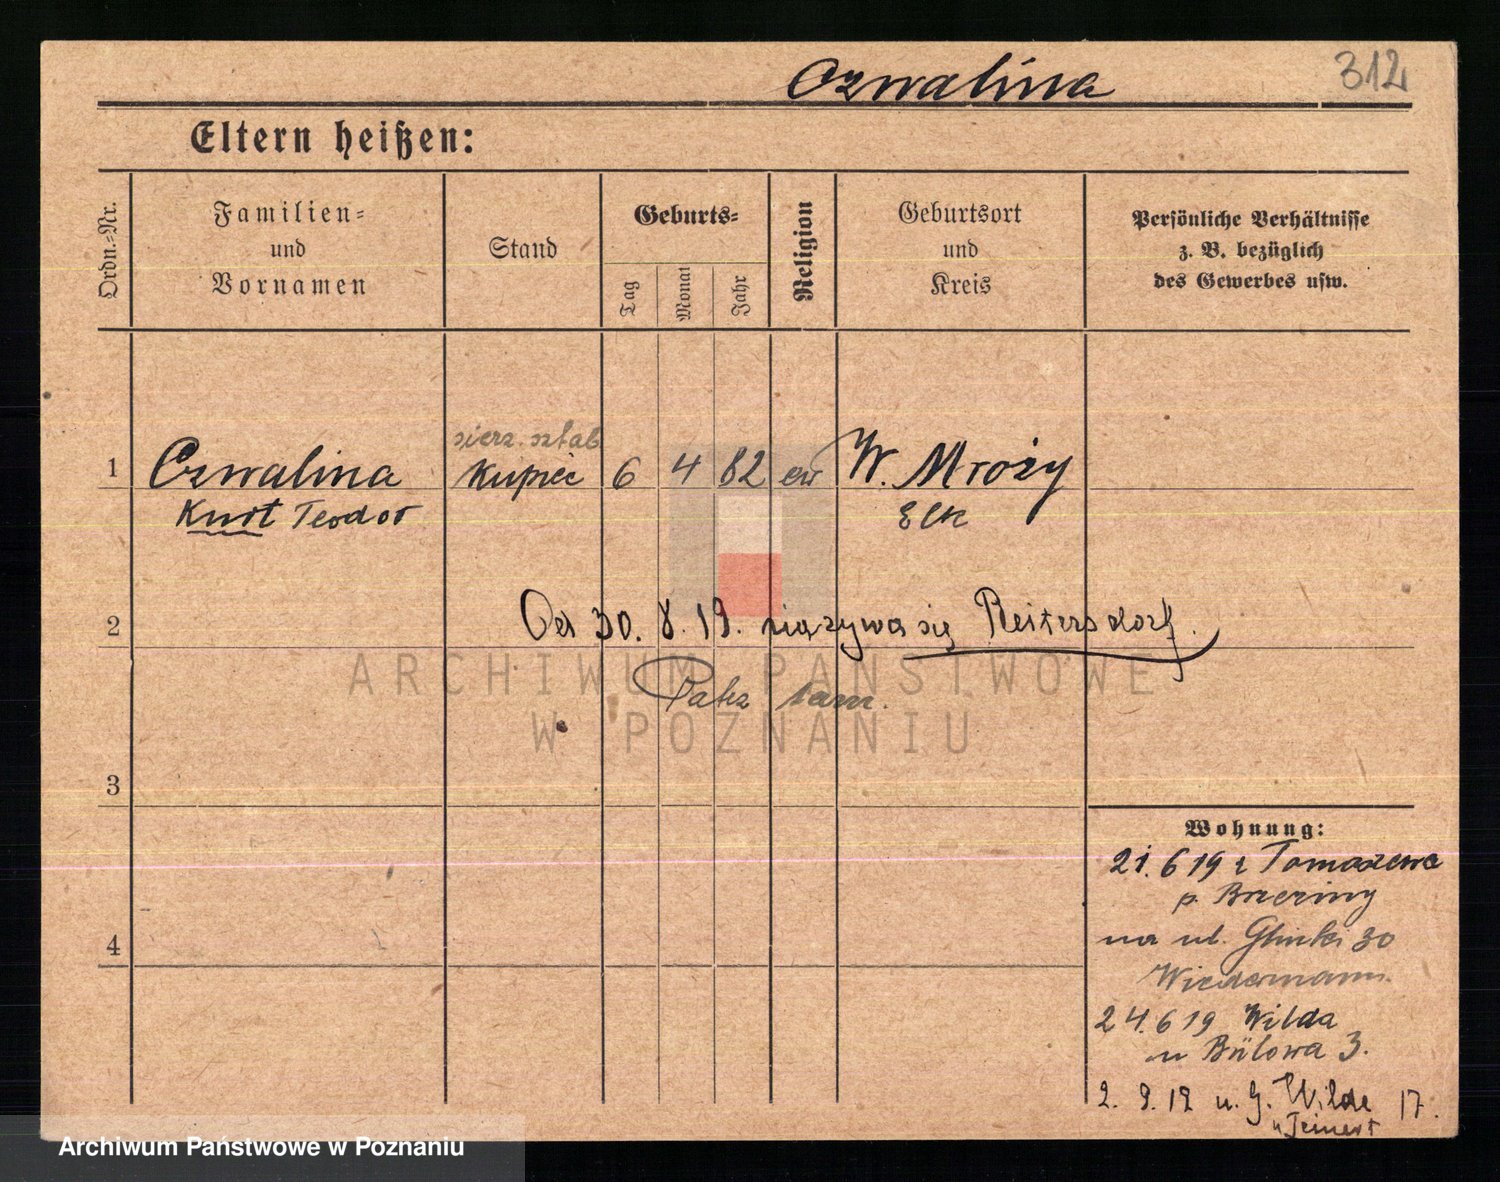 Czwalina
312
Eltern heißen:
Ordn.-Nr.
Familien-
und
Vornamen
Stand
Geburts-
Tag
Monat
Jahr
Religion
Geburtsort
und
Kreis
Persönliche Verhältnisse
z. B. bezüglich
des Gewerbes usw.
sierz. sztab
1 Czwalina Kupiec 6 4 82 ew W. Mroży
Kurt Teodor Ełk
2 Od 30. 8. 19. nazywa się Reitersdorf.
Patrz tam.
ARCHIWUM PAŃSTWOWE
W POZNANIU
3
Wohnung:
21. 6 19 z Tomaszewa
p.
na ul. Glinki 30
4
Wiedermann.
24. 6 19 Wilda
u Bülowa 3.
2. 9. 19 u. G. Wilde 17.
u Teinert
Archiwum Państwowe w Poznaniu